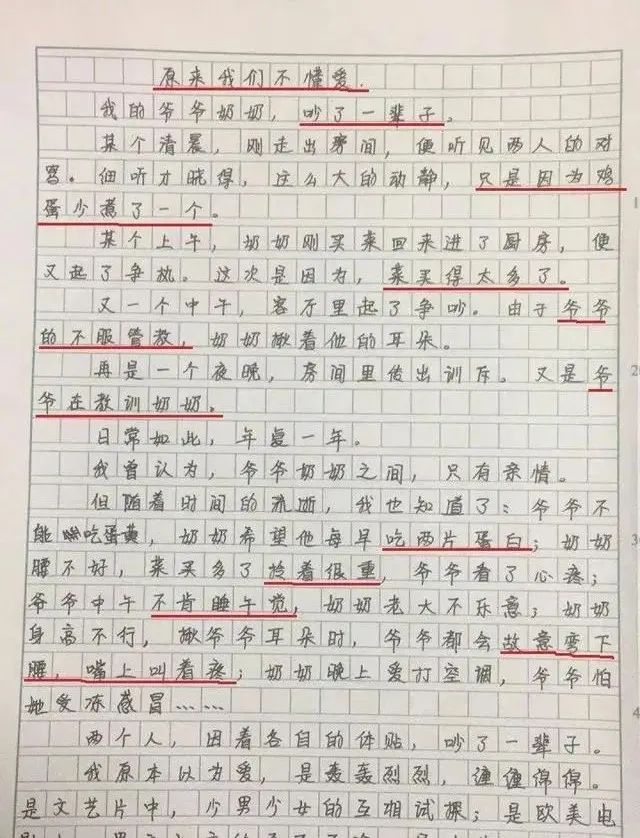 原来我们不懂爱.
我的爷爷奶奶，吵了一辈子。
某个清晨，刚走出房间，便听见两人的对
骂。细听才晓得，这么大的动静，只是因为鸡
蛋少煮了一个。
某个上午，奶奶刚买来回来进了厨房，便
又起了争执。这次是因为，菜买得太多了。
又一个中午，客厅里起了争吵。由于爷爷
的不服管教，奶奶揪着他的耳朵。
再是一个夜晚，房间里传出训斥。又是爷
爷在教训奶奶。
日常如此，年复一年。
我曾认为，爷爷奶奶之间，只有亲情。
但随着时间的流逝，我也知道了：爷爷不
能吃蛋黄，奶奶希望他每早吃两片蛋白；奶奶
腰不好，菜买多了拎着很重，爷爷看了心疼；
爷爷中午不肯睡午觉，奶奶老大不乐意；奶奶
身高不行，揪爷爷耳朵时，爷爷都会故意弯下
腰，嘴上叫着疼；奶奶晚上爱打空调，爷爷怕
她受冻感冒……
两个人，因着各自的体贴，吵了一辈子。
我原本以为爱，是轰轰烈烈，缠缠绵绵。
是文艺片中，少男少女的互相试探；是欧美电